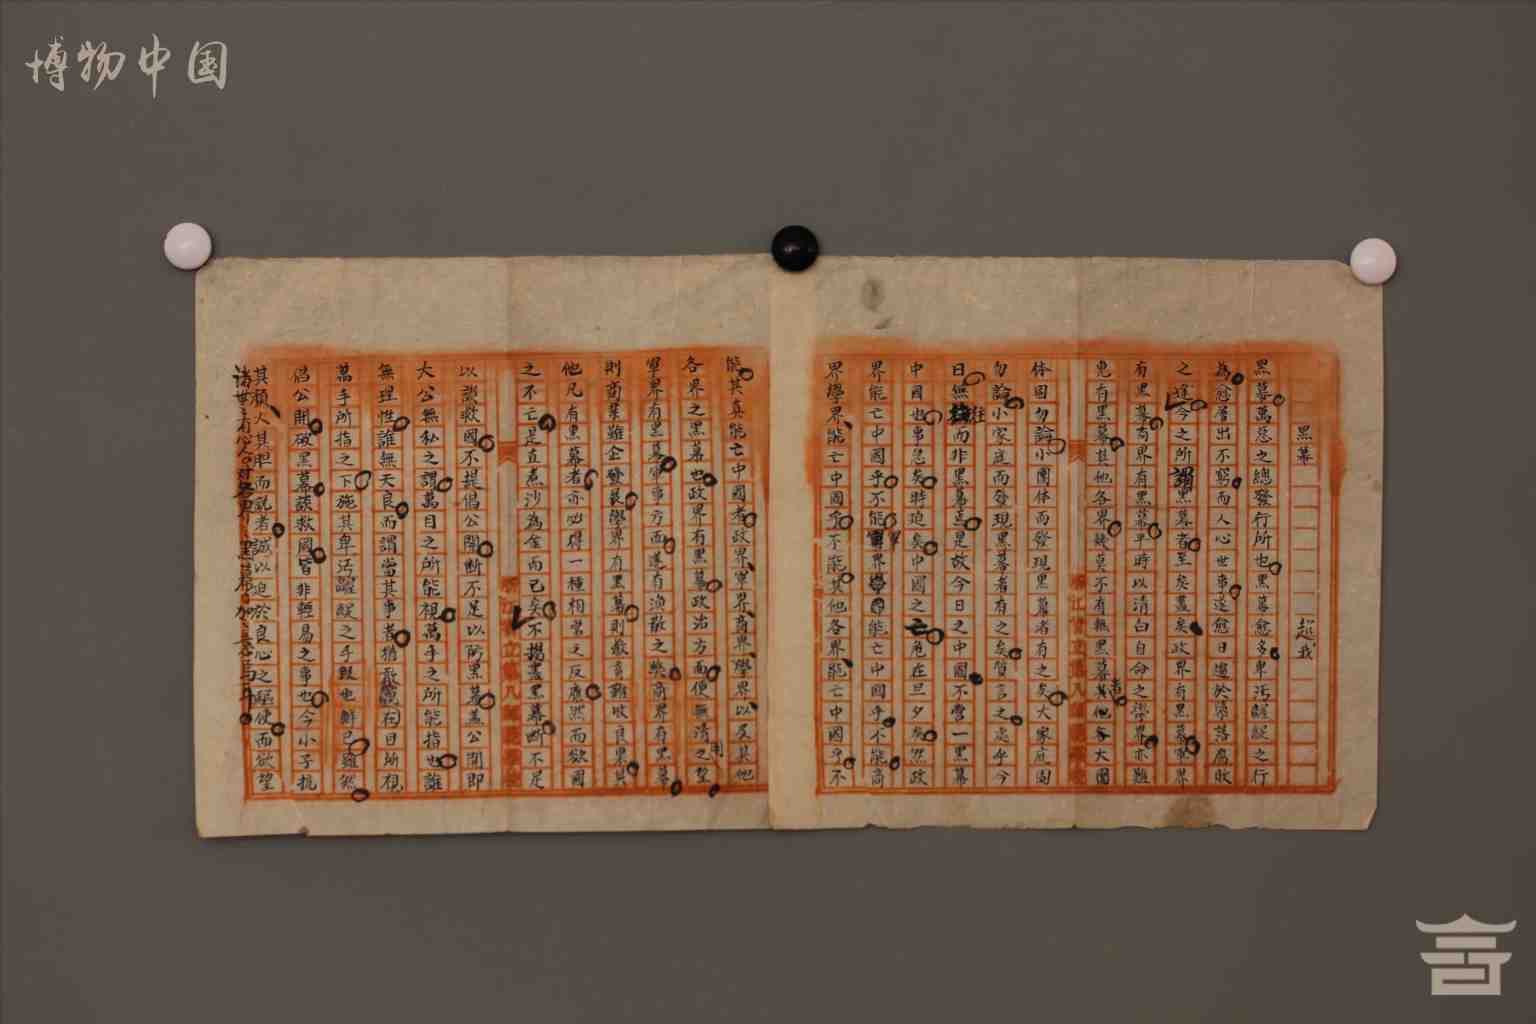 博物中国
黑幕 超我
黑幕萬惡之總發行所也黑幕愈多卑汚齷齪之行
為愈層出不窮而人心世事遂愈日趨於墮落腐敗
之途今之所謂黑幕者至矣盡矣政界有黑幕軍界
有黑幕商界有黑幕平時以清白自命之學界亦難
免有黑幕其他各界幾莫不有無黑幕者大團
体固勿論小團体而發現黑幕者有之矣大家庭固
勿論小家庭而發現黑幕者有之矣質言之處乎今
日無往而非黑幕焉是故今日之中國不啻一黑幕
中國也事急矣時迫矣中國之亡危在旦夕矣然政
界能亡中國乎不能軍界能亡中國乎不能商
界學界能亡中國乎不能其他各界能亡中國乎不
能其真能亡中國者政界軍界商界學界以及其他
各界之黑幕也政界有黑幕政治方面便無清明之望
軍界有黑幕軍事方面遂有渙散之弊商界有黑幕
則商業雖企發展學界有黑幕則教育難收良果其
他凡有黑幕者亦必得一種相當之反應然而欲國
之不亡是直煮沙為金而已矣不揭盡黑幕斷不足
以談救國不提倡公開斷不足以防黑幕蓋公開即
大公無私之謂萬目之所能視萬手之所能指也誰
無理性誰無天良而謂當其事者猶敢於万目所視
萬手所指之下施其卑汚齷齪之手段也鮮已雖然
倡公開破黑幕談救國皆非輕易之事也今小子抗
其顏大其胆而說者誠以迫於良心之驅使而欲望
諸世之有心人對各界之黑幕加之意焉耳
浙江省立第八